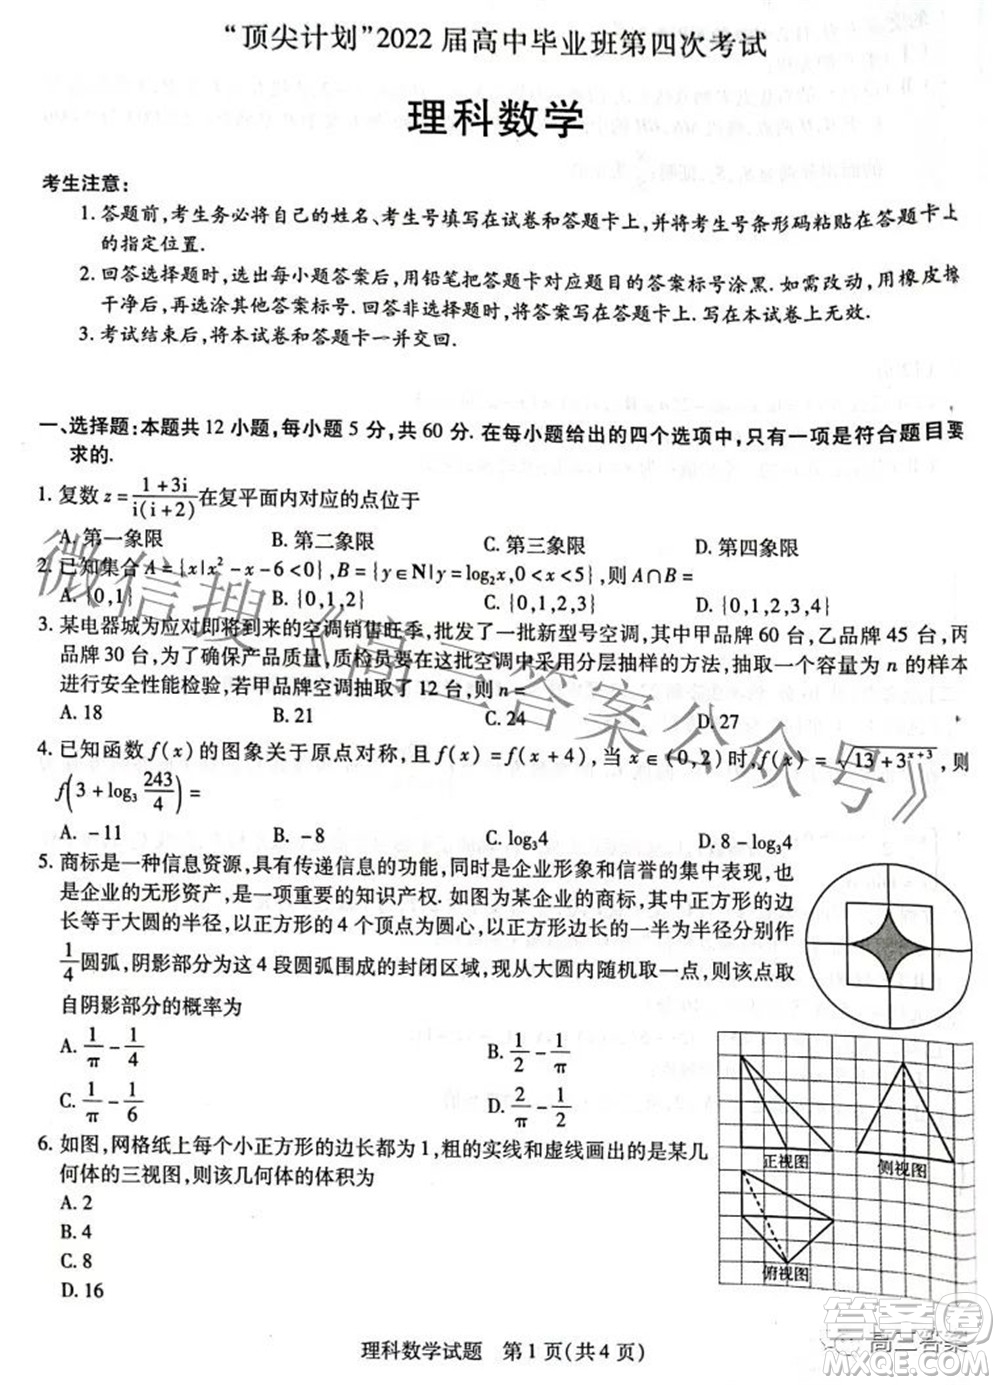 “顶尖计划”2022届高中毕业班第四次考试
理科数学
考生注意:
1. 答题前,考生务必将自己的姓名、考生号填写在试卷和答题卡上,并将考生号条形码粘贴在答题卡上
的指定位置.
2. 回答选择题时,选出每小题答案后,用铅笔把答题卡对应题目的答案标号涂黑. 如需改动,用橡皮擦
干净后,再选涂其他答案标号. 回答非选择题时,将答案写在答题卡上. 写在本试卷上无效.
3. 考试结束后,将本试卷和答题卡一并交回.
一、选择题:本题共 12 小题,每小题 5 分,共 60 分. 在每小题给出的四个选项中,只有一项是符合题目要
求的.
1. 复数 z = (1+3i)/(i(i+2)) 在复平面内对应的点位于
A. 第一象限 B. 第二象限 C. 第三象限 D. 第四象限
2. 已知集合 A = {x|x²-x-6<0},B = {y∈N|y=log₂x,0<x<5},则 A∩B =
A. {0,1} B. {0,1,2} C. {0,1,2,3} D. {0,1,2,3,4}
3. 某电器城为应对即将到来的空调销售旺季,批发了一批新型号空调,其中甲品牌 60 台,乙品牌 45 台,丙
品牌 30 台,为了确保产品质量,质检员要在这批空调中采用分层抽样的方法,抽取一个容量为 n 的样本
进行安全性能检验,若甲品牌空调抽取了 12 台,则 n =
A. 18 B. 21 C. 24 D. 27
4. 已知函数 f(x) 的图象关于原点对称,且 f(x) = f(x+4),当 x∈(0,2) 时,f(x) = √(13+3^(x+3)),则
f(3+log₃ 243/4) =
A. -11 B. -8 C. log₃4 D. 8-log₃4
5. 商标是一种信息资源,具有传递信息的功能,同时是企业形象和信誉的集中表现,也
是企业的无形资产,是一项重要的知识产权. 如图为某企业的商标,其中正方形的边
长等于大圆的半径,以正方形的 4 个顶点为圆心,以正方形边长的一半为半径分别作
1/4 圆弧,阴影部分为这 4 段圆弧围成的封闭区域,现从大圆内随机取一点,则该点取
自阴影部分的概率为
A. 1/π - 1/4 B. 1/2 - 1/π
C. 1/π - 1/6 D. 2/π - 1/2
6. 如图,网格纸上每个小正方形的边长都为 1,粗的实线和虚线画出的是某几
何体的三视图,则该几何体的体积为
A. 2
B. 4
C. 8
D. 16
正视图 侧视图
俯视图
理科数学试题 第 1 页(共 4 页)
微信搜《高三答案公众号》
答案圈
高三答案
MXQE.COM